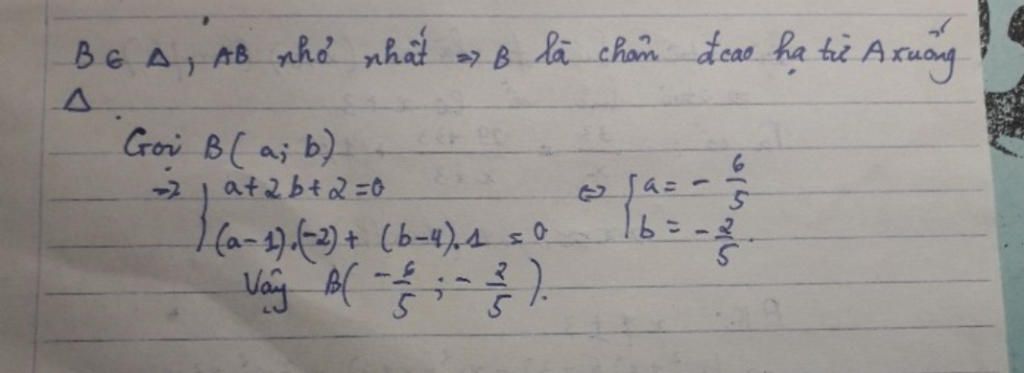 B ∈ Δ, AB nhỏ nhất => B là chân đcao hạ từ A xuống
Δ.
Gọi B( a; b)
=> { a + 2b + 2 = 0 <=> { a = - 6/5
(a-1).(-2) + (b-4).1 = 0 b = - 2/5.
Vậy B( - 6/5 ; - 2/5 ).